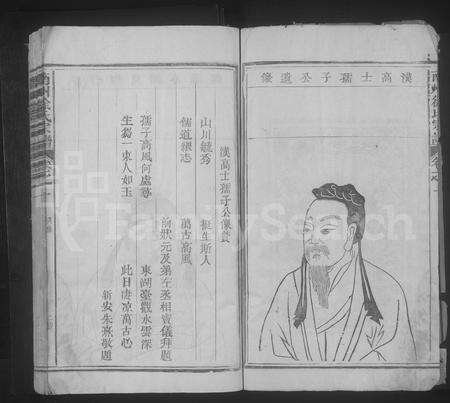 漢高士孺子公遺像
漢高士孺子公像贊
山川毓秀 挺生斯人
儒道繼志 萬古高風
前狀元及第左丞相袁儀拜題
孺子高風何處尋 東湖臺觀水雲深
生芻一束人如玉 此日凄凉萬古心
新安朱熹敬題
FamilySearch